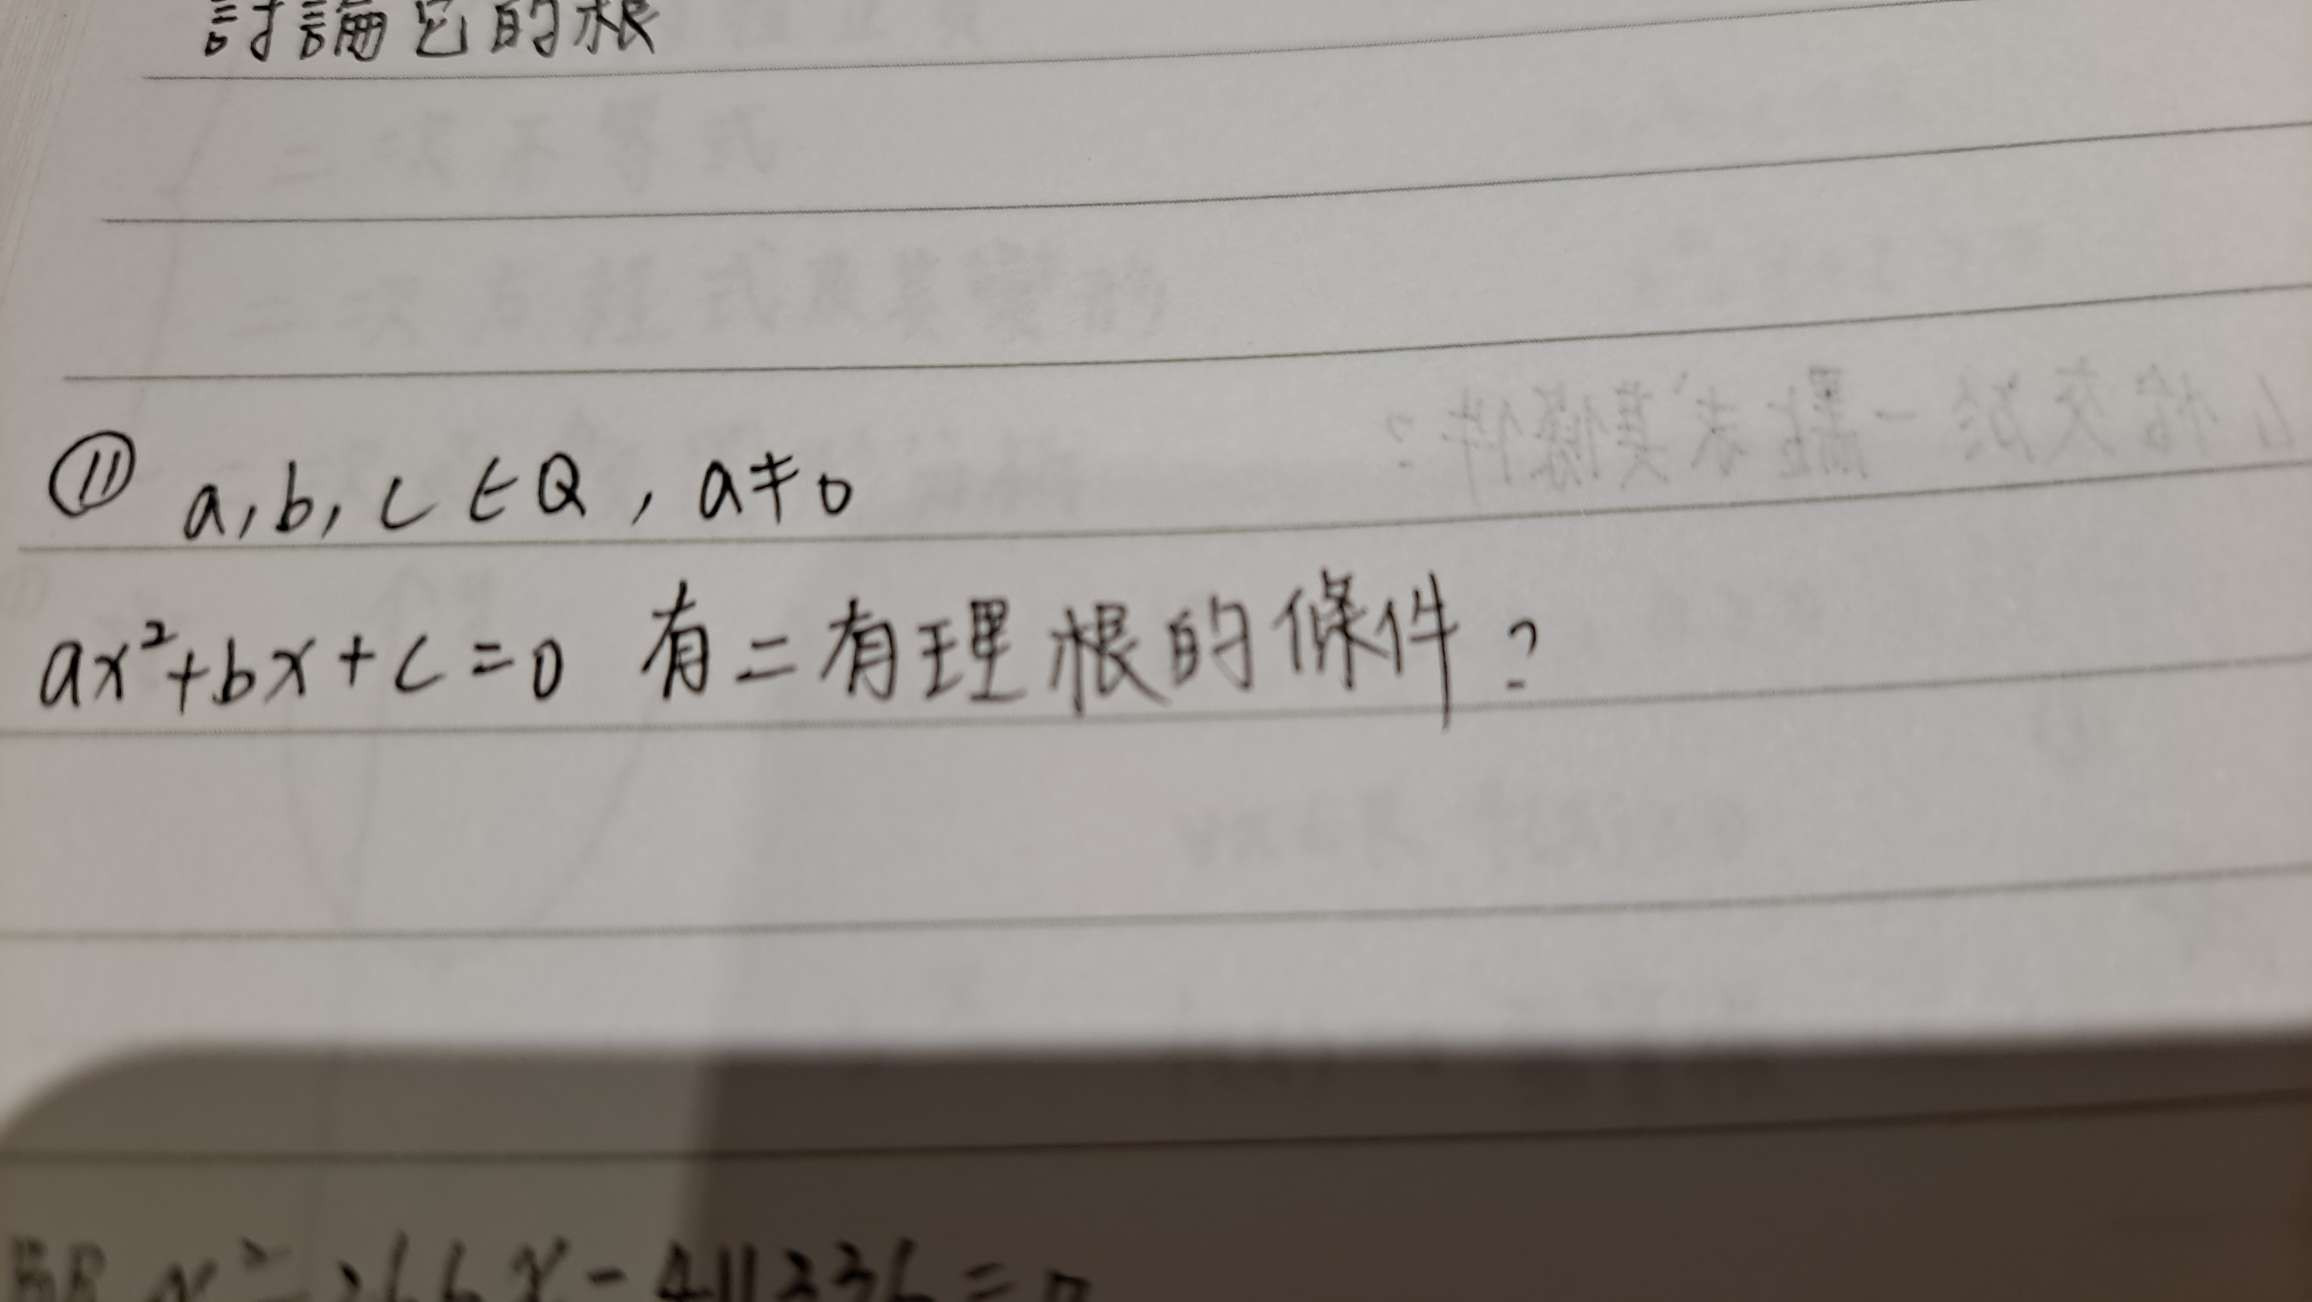 討論它的根
⑪ a, b, c ∈ Q , a ≠ 0
ax²+bx+c=0 有二有理根的條件?